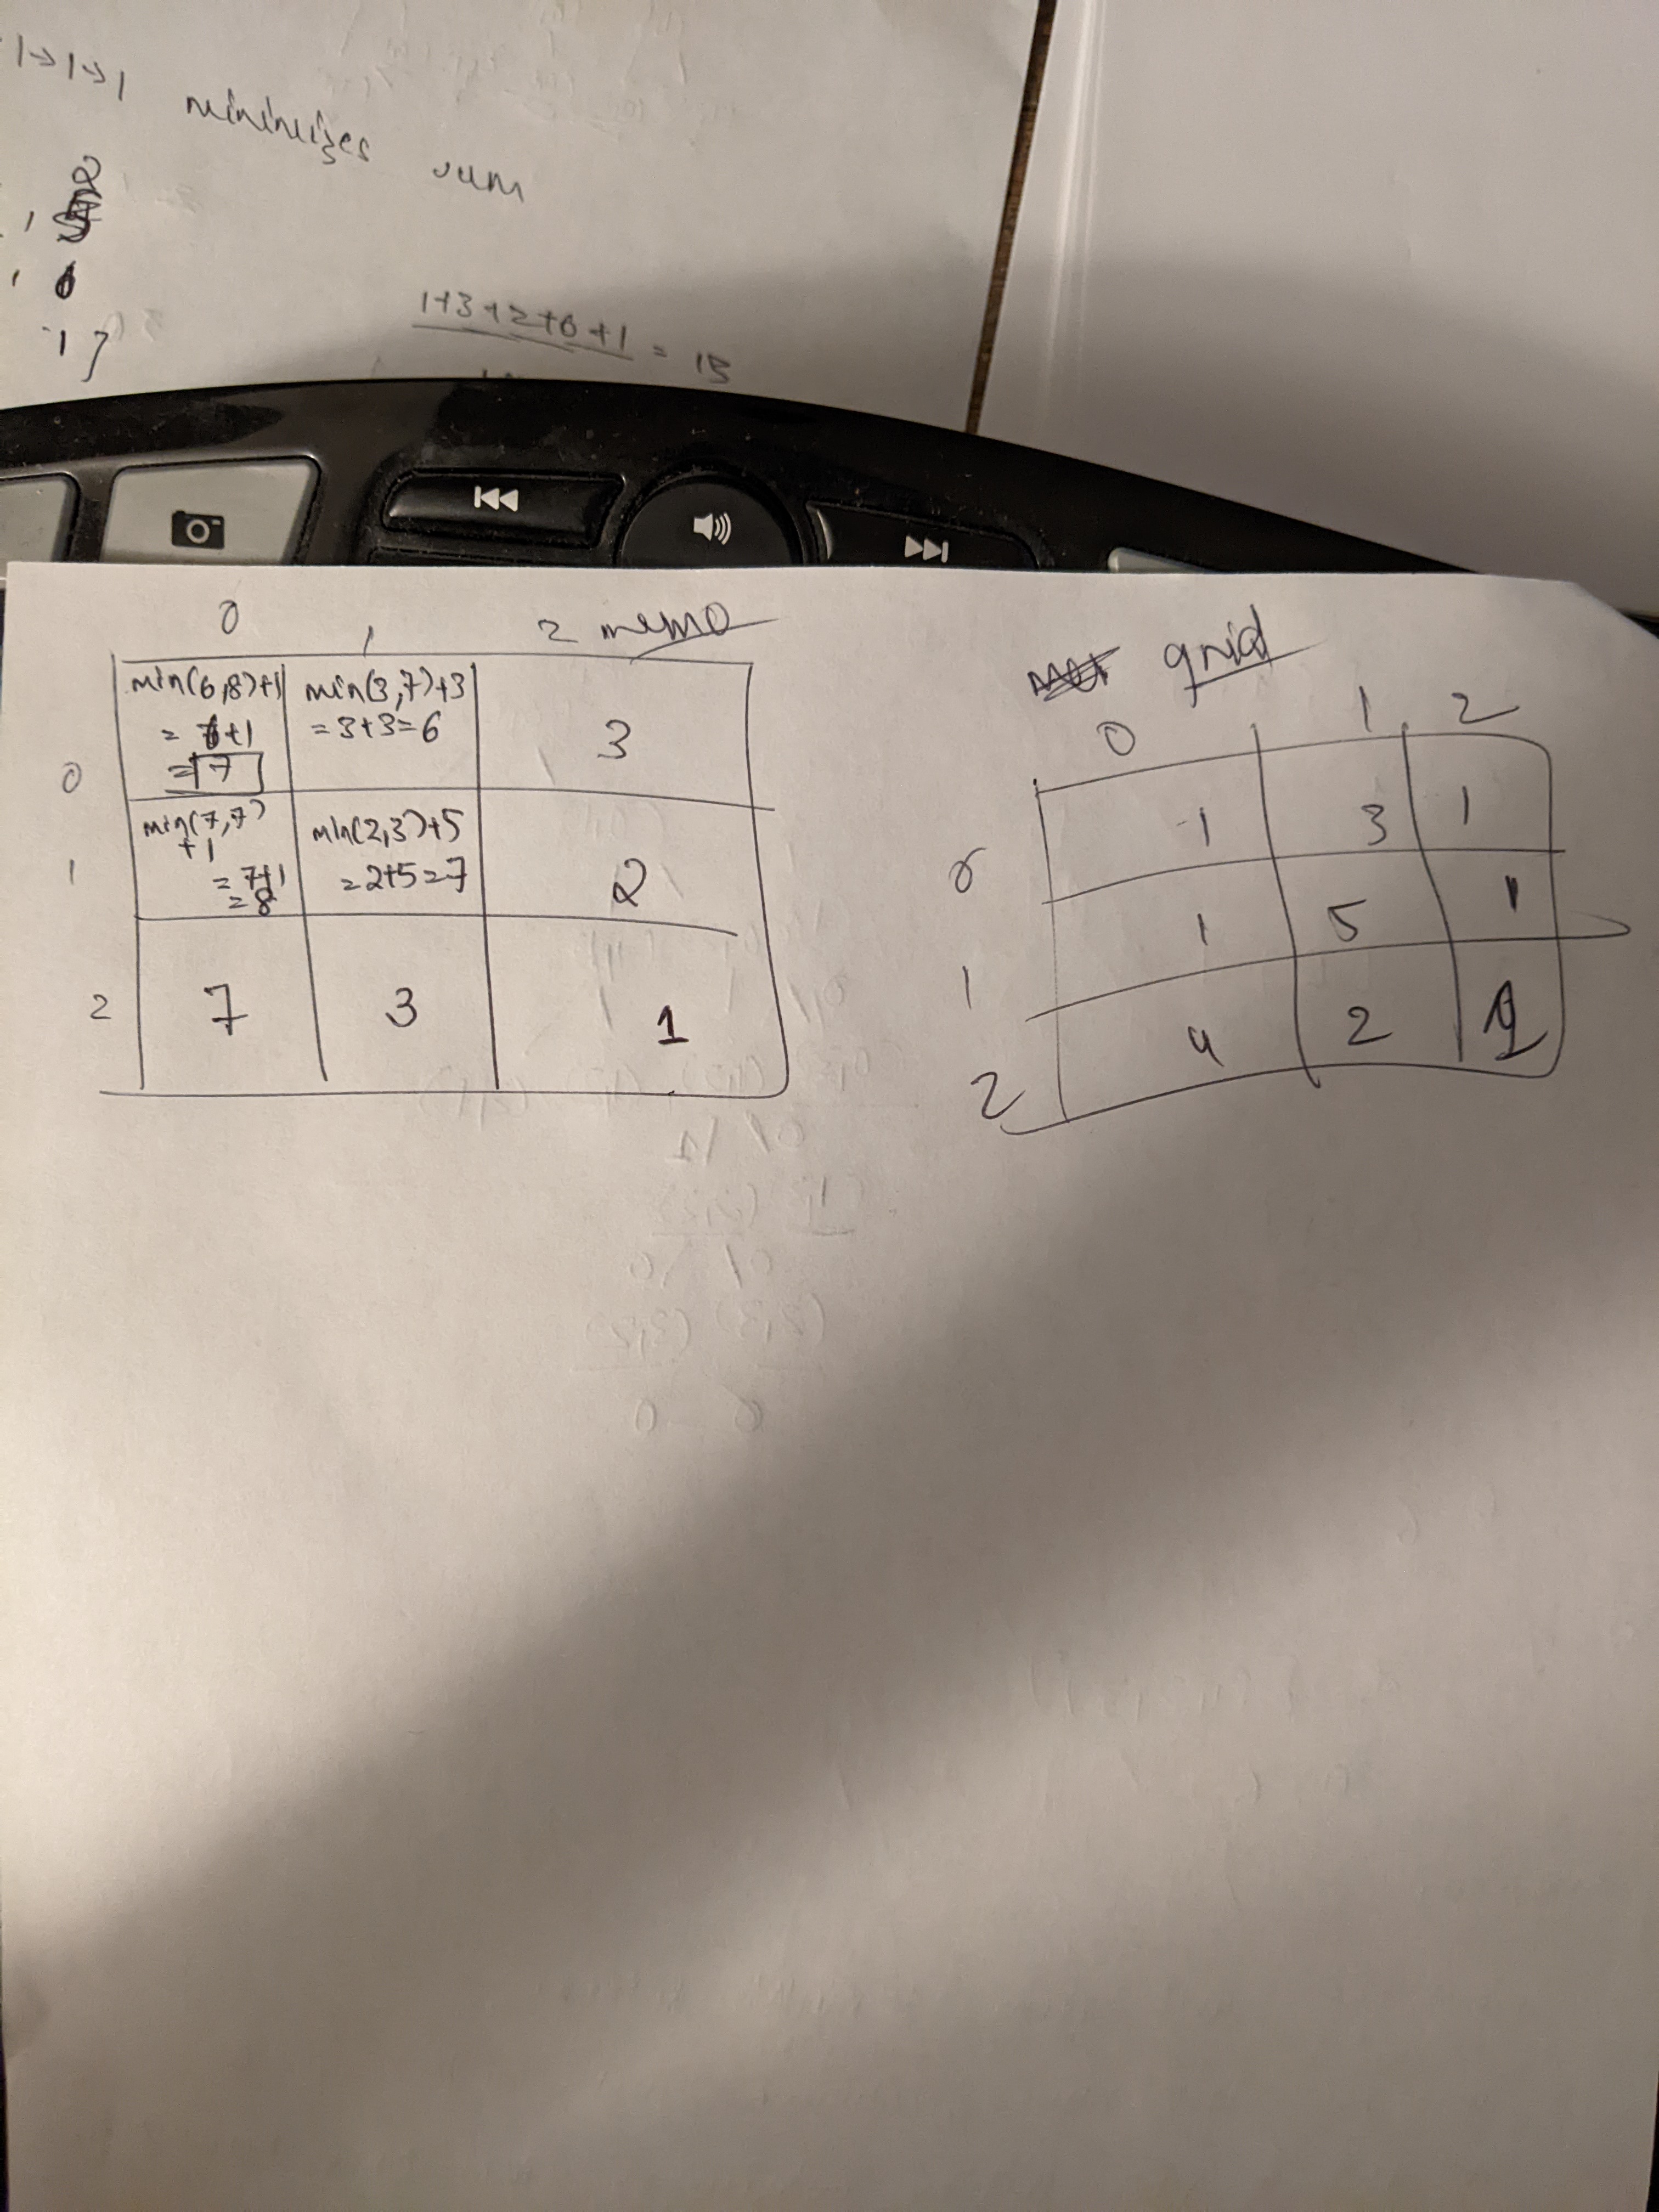 1→1→1 minimizes sum
2
1
1 7
1+3+2+6+1 = 13
0 1 2 memo
0
min(6,8)+1
= 6+1
= 7
min(3,7)+3
= 3+3=6
3
1
min(7,7)
+1
= 7+1
= 8
min(2,3)+5
= 2+5=7
2
2 7 3 1
grid
0 1 2
0 1 3 1
1 1 5 1
2 4 2 1